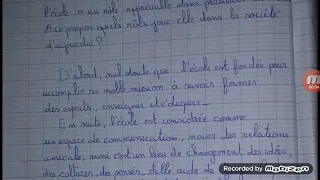 l'école, a un rôle appréciable dans plusieurs
A ce propos quels rôles joue-elle dans la société
d'aujourdui ?
D'abord, nul doute que l'école est fondée pour
accomplir sa noble mission à savoir former
des esprits, enseigner et éduquer...
En suite, l'école est considérée comme
un espace de communication, nouer des relations
amicale, aussi c'est un lieu de changement des idées,
des cultures, de pensés, elle aide
00:04
Recorded by Mobizen